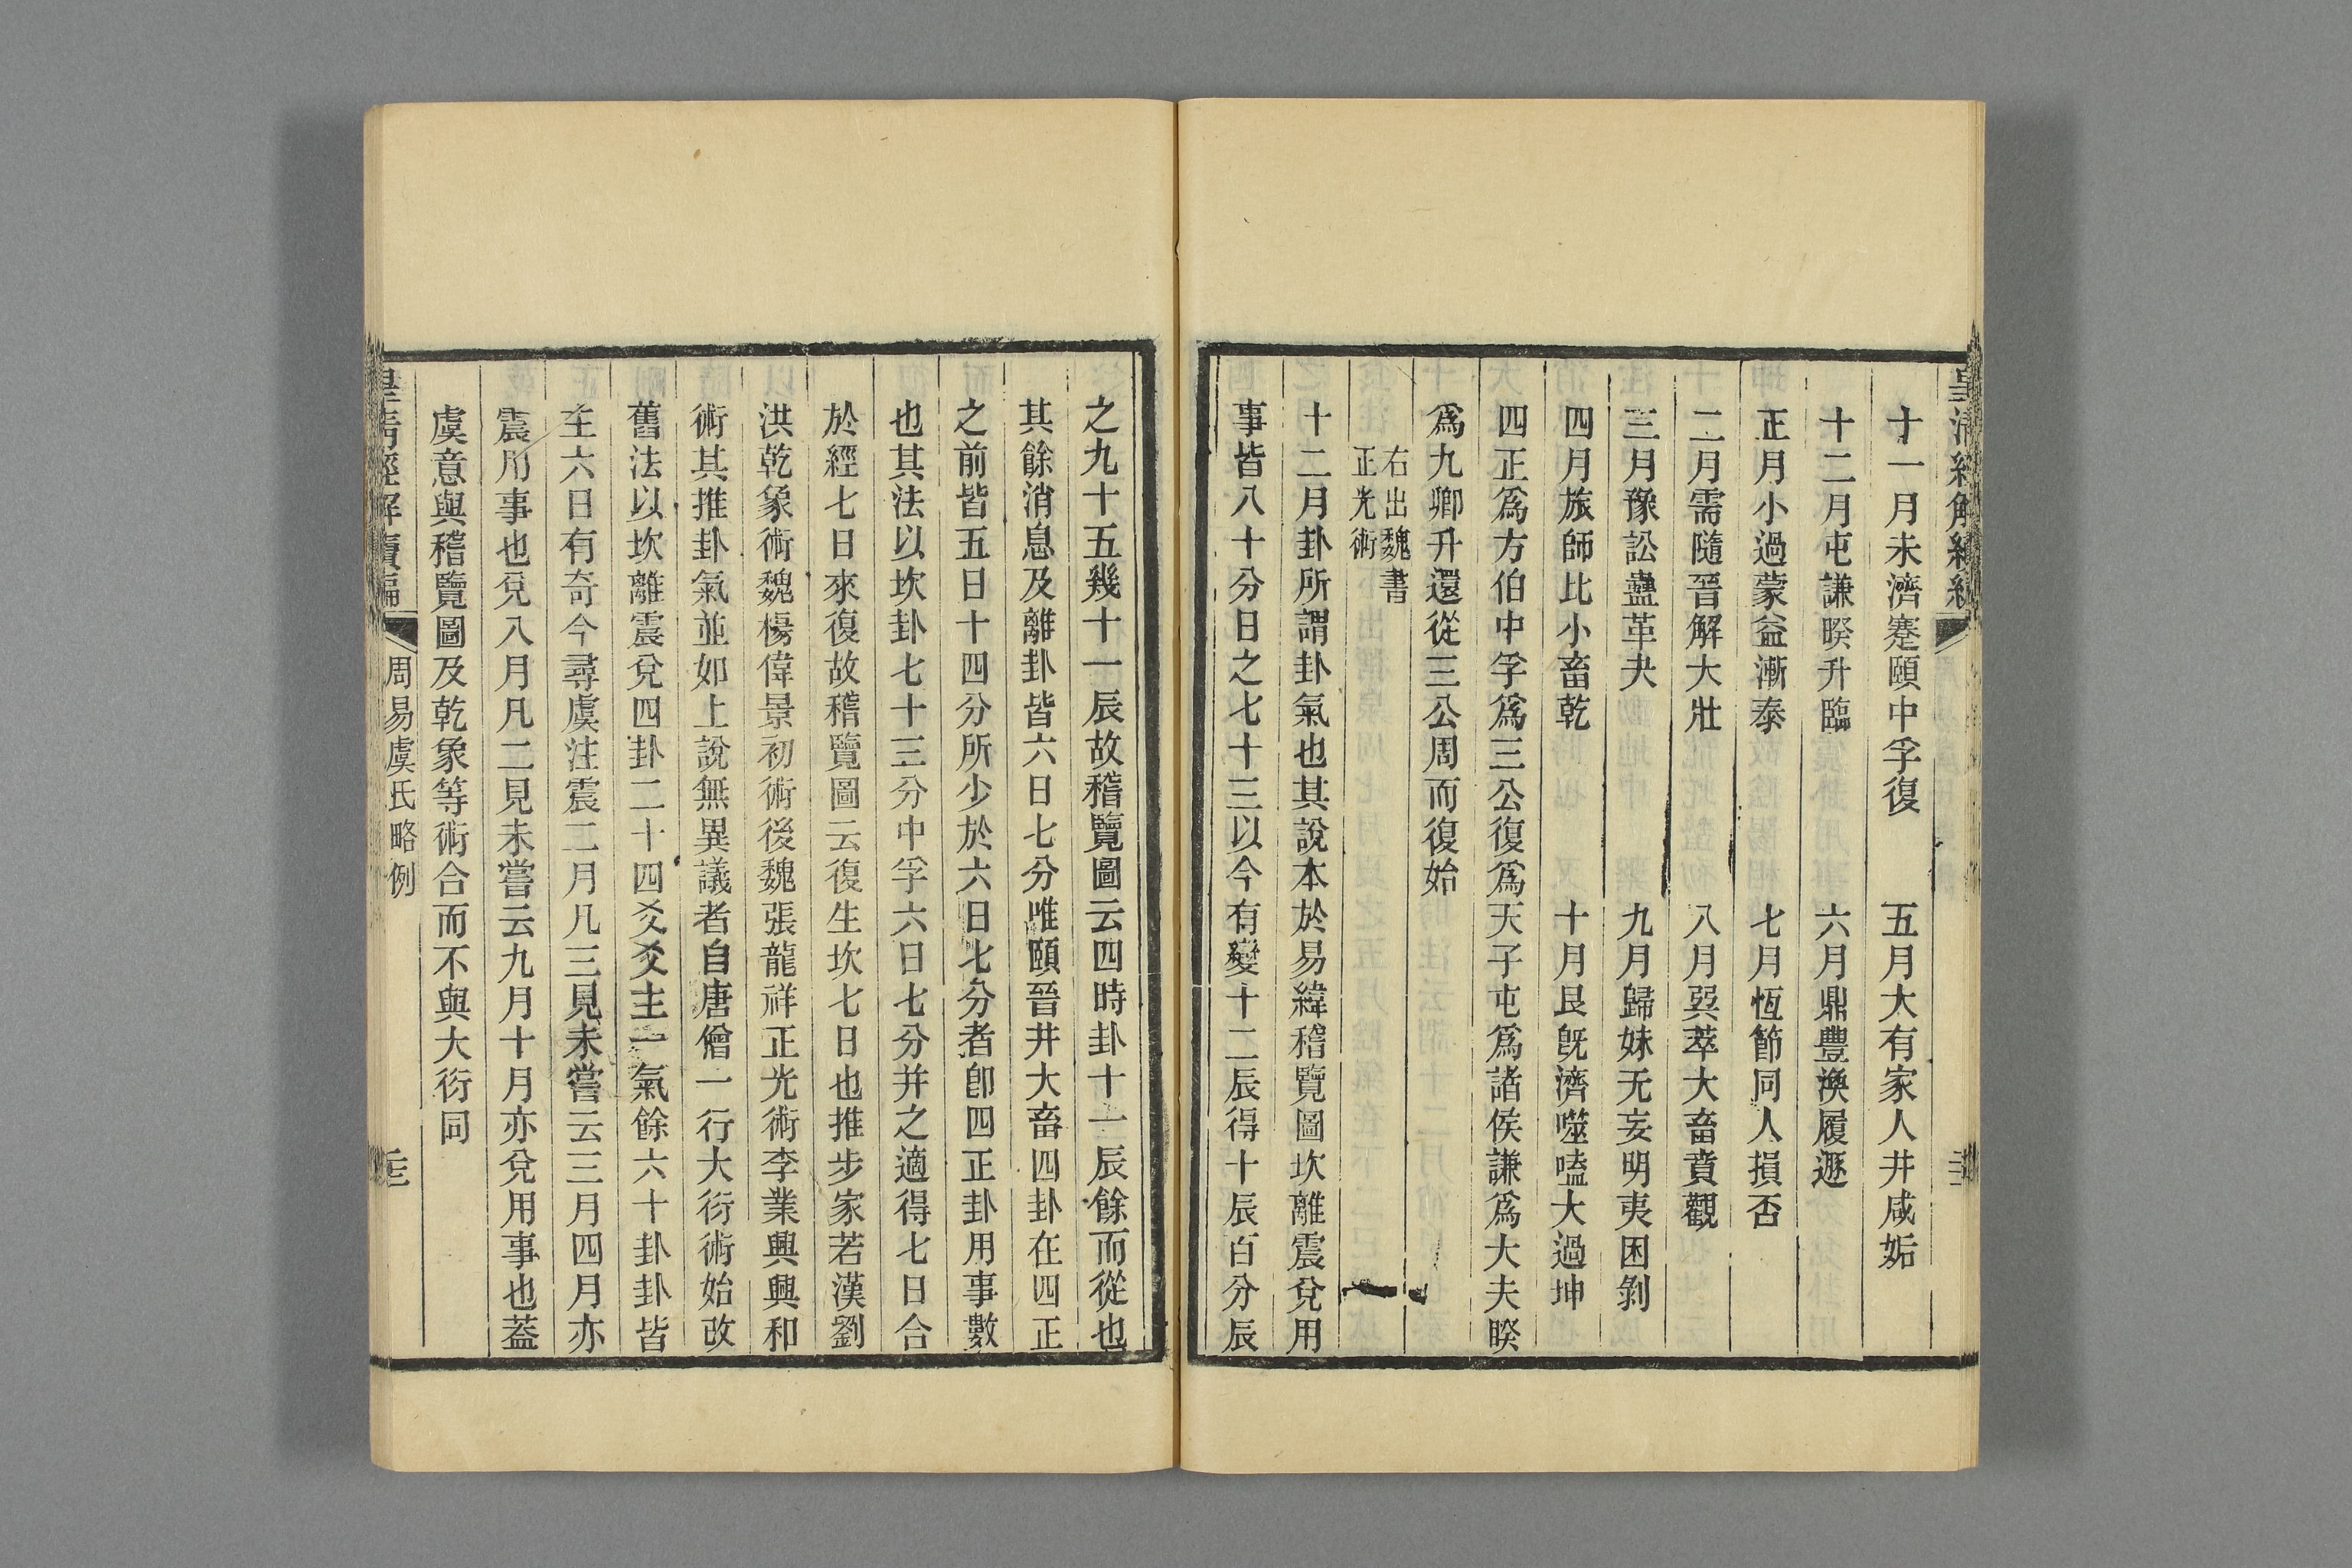 皇清經解續編
十一月未濟蹇頤中孚復　五月大有家人井咸姤
十二月屯謙睽升臨　六月鼎豐渙履遯
正月小過蒙益漸泰　七月恆節同人損否
二月需隨晉解大壯　八月巽萃大畜賁觀
三月豫訟蠱革夬　九月歸妹无妄明夷困剝
四月旅師比小畜乾　十月艮旣濟噬嗑大過坤
四正爲方伯中孚爲三公復爲天子屯爲諸侯謙爲大夫睽
爲九卿升還從三公周而復始
右出魏書
正光術
十二月卦所謂卦氣也其說本於易緯稽覽圖坎離震兌用
事皆八十分日之七十三以今有變十二辰得十辰百分辰
之九十五幾十一辰故稽覽圖云四時卦十一辰餘而從也
其餘消息及離卦皆六日七分唯頤晉井大畜四卦在四正
之前皆五日十四分所少於六日七分者卽四正卦用事數
也其法以坎卦七十三分中孚六日七分并之適得七日合
於經七日來復故稽覽圖云復生坎七日也推步家若漢劉
洪乾象術魏楊偉景初術後魏張龍祥正光術李業興興和
術其推卦氣並如上說無異議者自唐僧一行大衍術始改
舊法以坎離震兌四卦二十四爻爻主一氣餘六十卦卦皆
主六日有奇今尋虞注震二月凡三見未嘗云三月四月亦
震用事也兌八月凡二見未嘗云九月十月亦兌用事也蓋
虞意與稽覽圖及乾象等術合而不與大衍同
皇清經解續編　周易虞氏略例